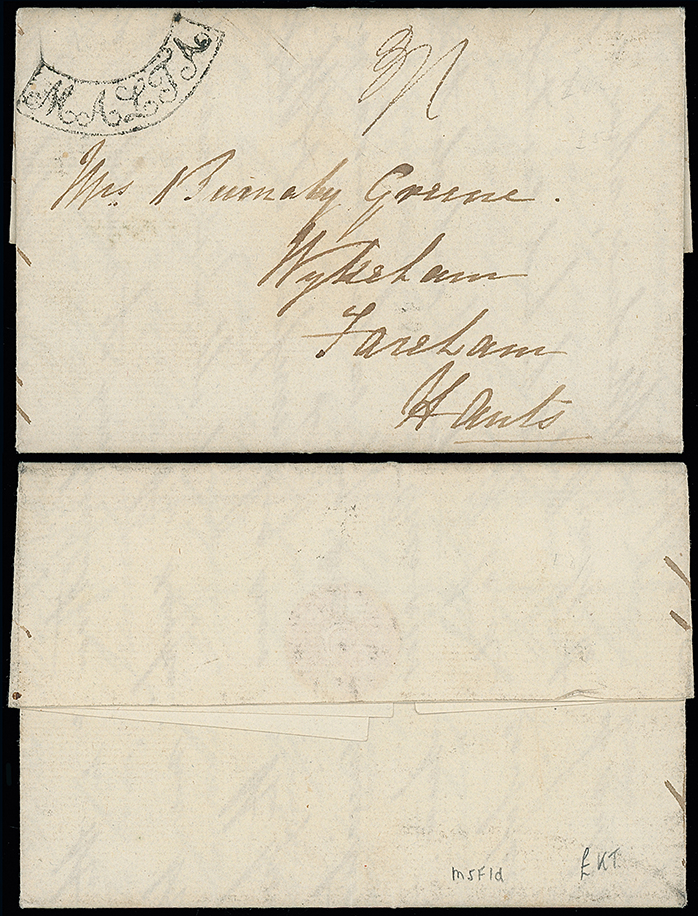 MALTA
Mrs Burnaby Greene.
Wykeham
Fareham
Hants
m5F1d
£KT